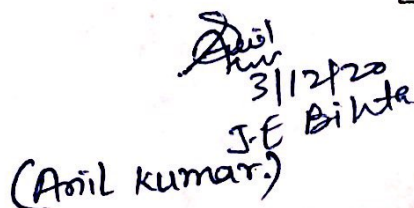 Anil
Kumar
3/12/20
J.E Bihta
(Anil Kumar.)